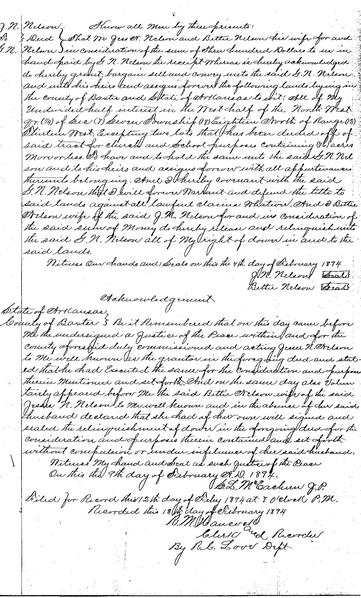 J. N. Nelson. Know all Men by these presents:
To } Deed } That We Jess N. Nelson and Bettie Nelson his wife for and
G. N. Nelson } in consideration of the sum of Three hundred Dollars to us in
hand paid by G. N. Nelson the receipt Whereof is hereby acknowledged
do hereby grant bargain sell and convey unto the said G. N. Nelson
and unto his heirs and assigns forever the following lands lying in
the County of Baxter and State of Arkansas to wit: All of My
Undivided half interest in the West half of the North West
qr. (¼) of Sec (7) Seven Township (18) Eighteen North of Range (13)
Thirteen West. Excepting two lots that has been deeded off of
said tract for church and School purposes containing acres
More or less To have and to hold the same unto the said G. N. Nel
son and to his heirs and assigns forever with all appurtenances
thereunto belonging. And I hereby covenant with the said
G. N. Nelson that I will forever Warrant and defend the title to
said lands against all lawful claims Whatever. And I Bettie
Nelson wife of the said J. N. Nelson for and in consideration of
the said sum of Money do hereby release and relinquish unto
the said G. N. Nelson all of My right of dower in and to the
said lands.
Witness Our hands and Seals on this the 9th day of February 1894
J. N. Nelson {Seal}
Bettie Nelson {Seal}
Acknowledgment
State of Arkansas
County of Baxter } Be it Remembered that on this day came before
Me the undersigned a Justice of the Peace within and for the
County aforesaid duly commissioned and acting Jesse N. Nelson
to Me well known as the grantor in the foregoing deed and stat-
ed that he had Executed the same for the Consideration and purposes
therein Mentioned and set forth. And on the same day also Volun
tarily appeared before Me the said Bettie Nelson wife of the said
Jesse N. Nelson to Me well known and in the absence of her said
husband declared that she had of her own will signed and
sealed the relinquishment of dower in the foregoing deed for the
consideration and purposes therein contained and set forth
without compulsion or undue influence of her said husband.
Witness My hand and Seal as such Justice of the Peace
On this the 9th day of February A.D. 1894.
McEachern J.P.
Filed for Record this 12th day of Feby 1894 at 8 O'clock P.M.
Recorded this 13th day of February 1894
Clerk and Recorder
By R. C. Love Dept